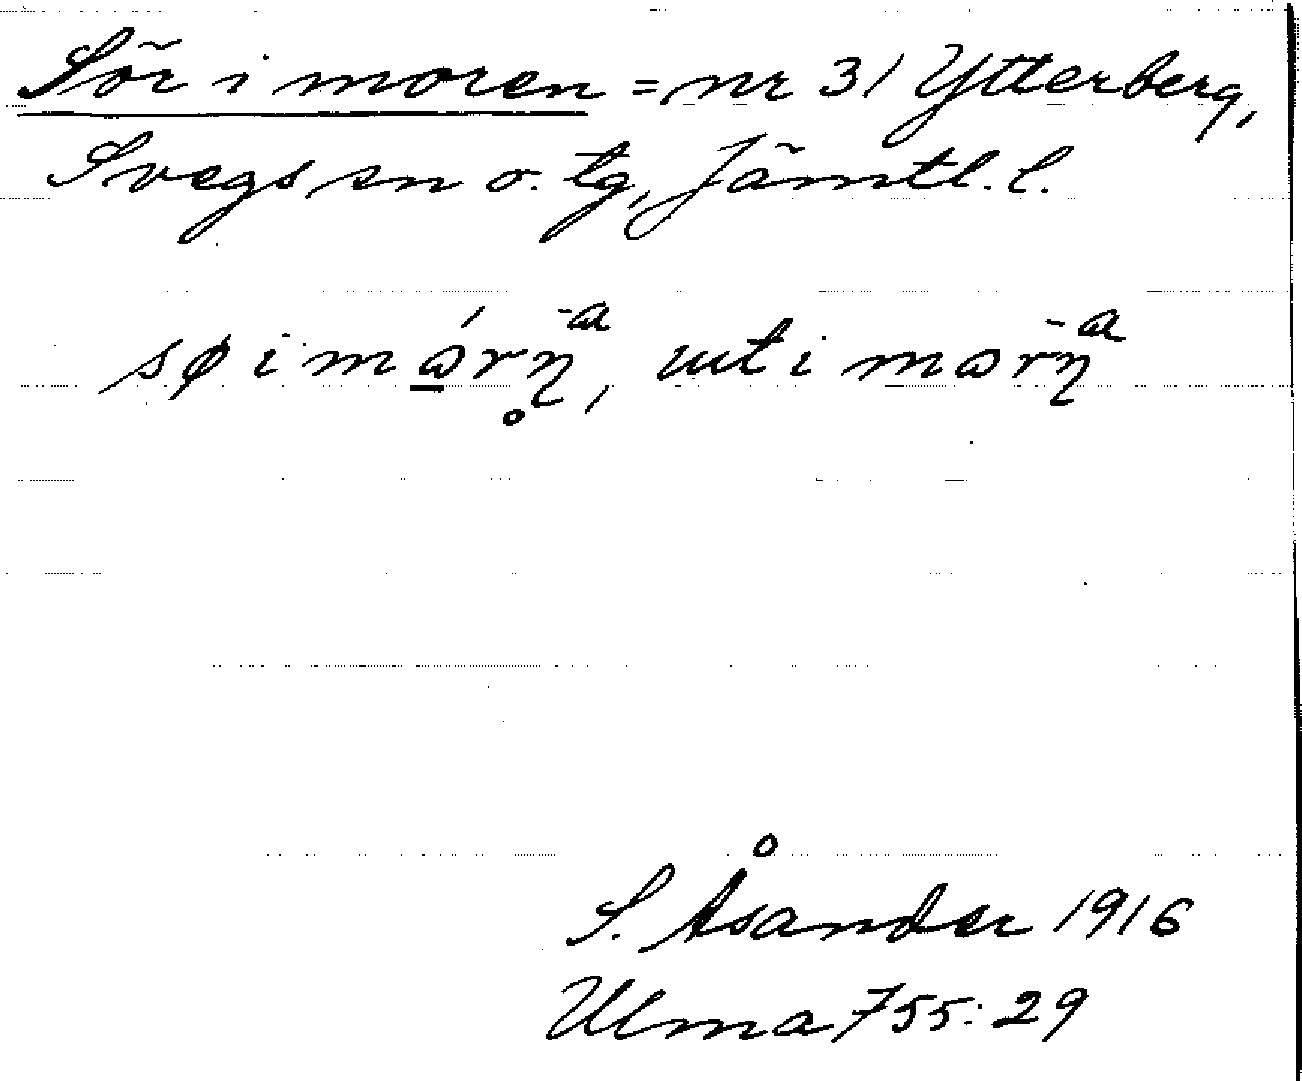 Sör i moren = nr 31 Ytterberg,
Svegs sn o. tg, Jämtl. l.
sø i mɷ́rη̥̄ᵃ, ut i mɷrη̄ᵃ
S. Åsander 1916
Ulma 755:29